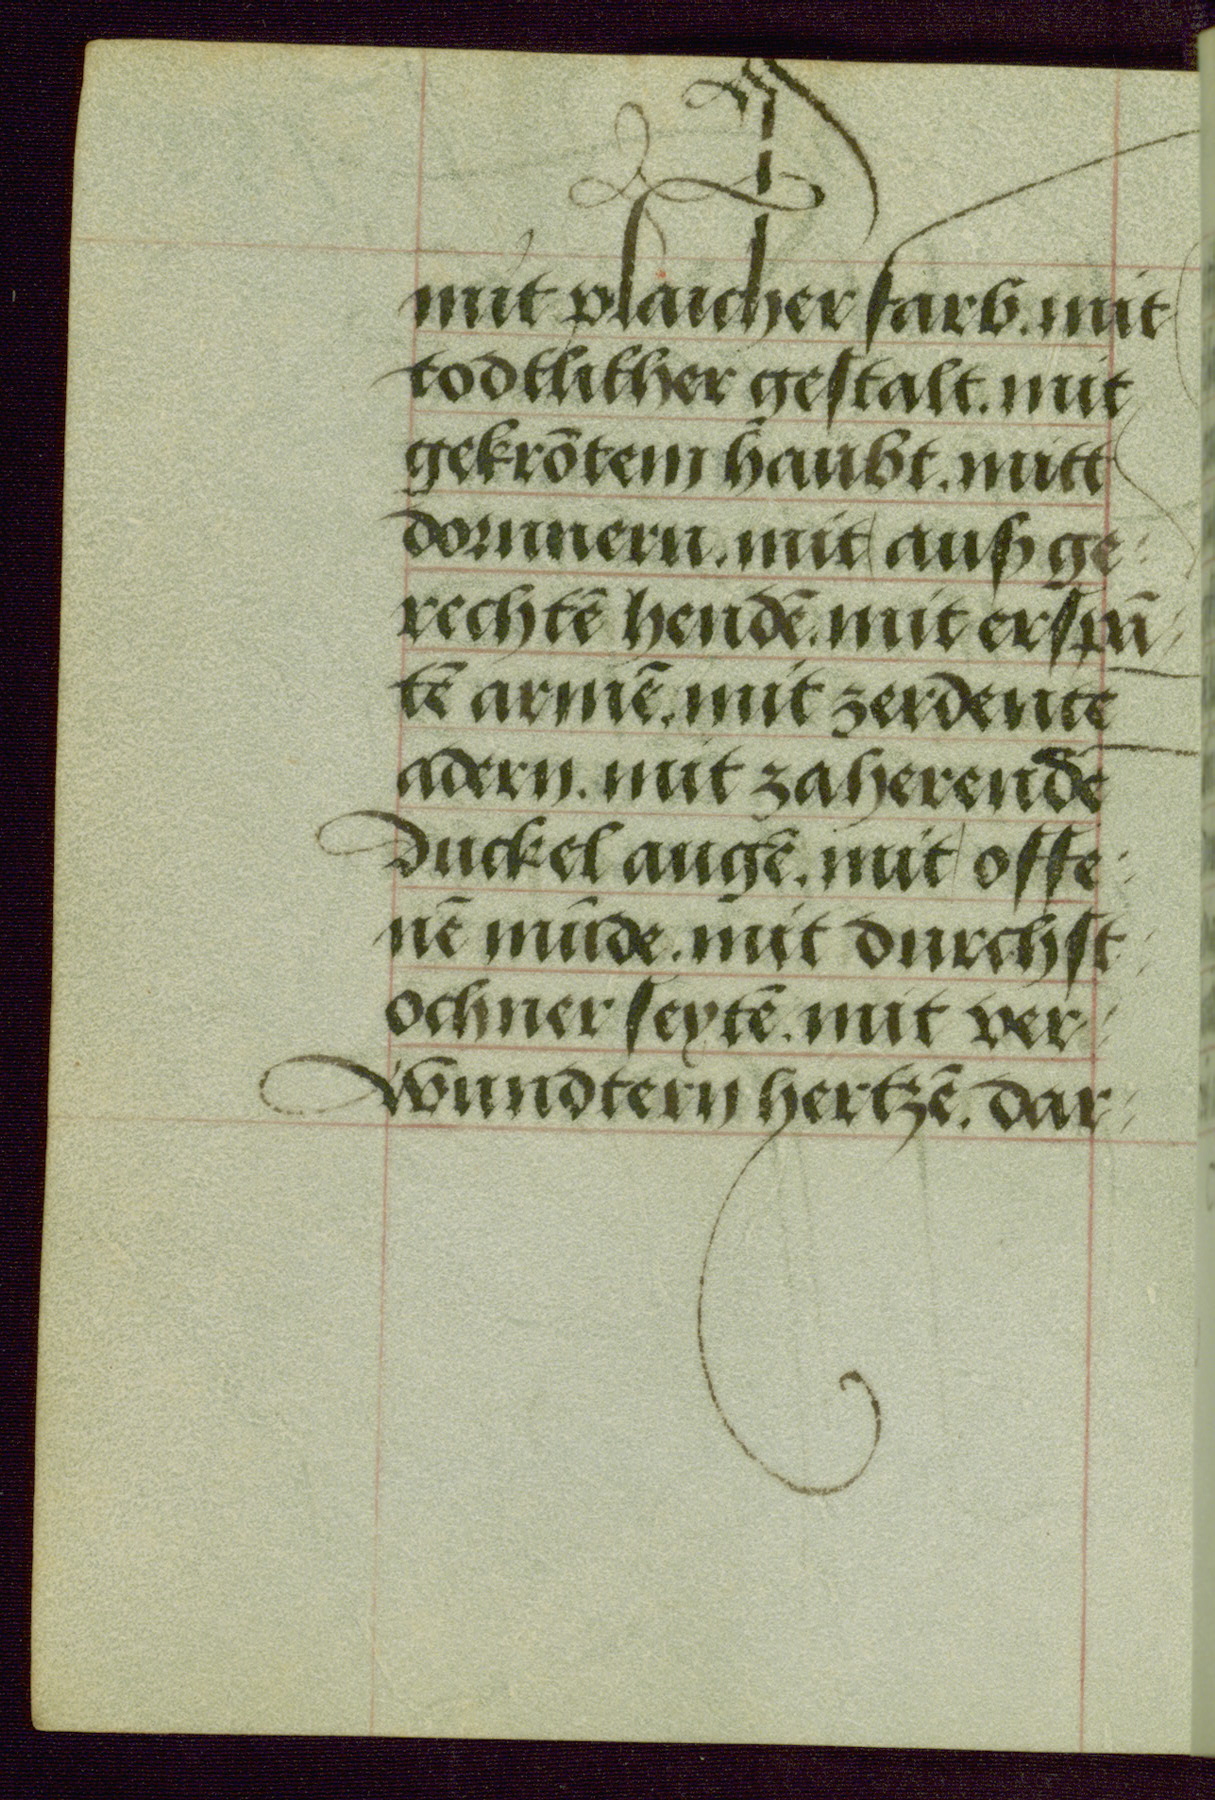 mit plaicher farb. mit
todtlicher gestalt. mit
gekrōtem haubt. mitt
dornnern. mit auß ge⸗
rechtē hendē. mit erspñ⸗
tē armē. mit zerdente
adern. mit zaherende
duckel augē. mit offe⸗
nē mūde. mit durchst⸗
ochner seytē. mit ver⸗
wundtern hertzē. dar⸗